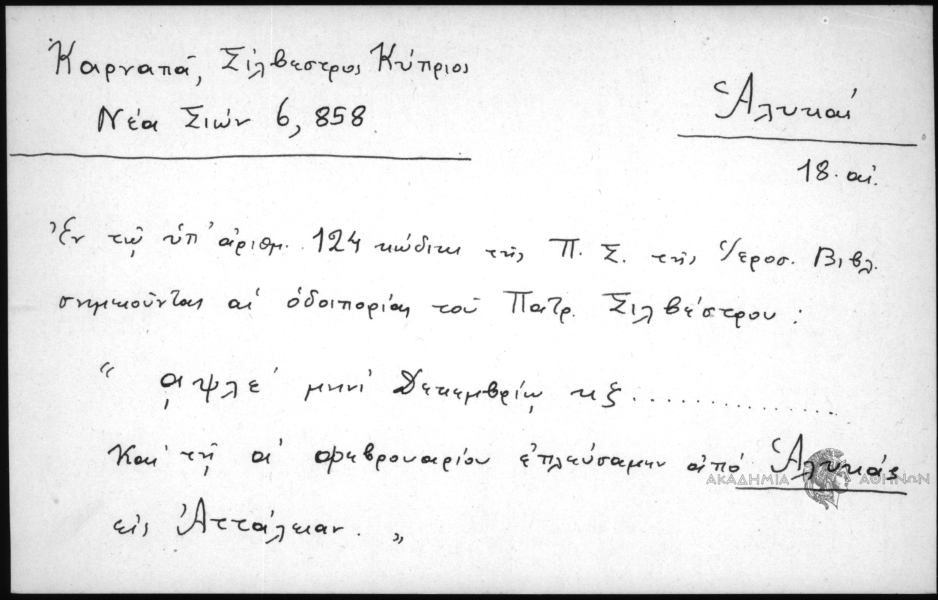 Καρναπᾶ, Σίλβεστρος Κύπριος
Νέα Σιών 6, 858
Ἁλυκαί
18. αἰ.
Ἐν τῷ ὑπ' ἀριθμ. 124 κώδικι τῆς Π. Σ. τῆς Ἱεροσ. Βιβλ.
σημειοῦνται αἱ ὁδοιπορίαι τοῦ Πατρ. Σιλβέστρου :
“ αψλε' μηνὶ Δεκεμβρίῳ κξ..............
Καὶ τῇ α' φεβρουαρίου ἐπλεύσαμεν ἀπὸ Ἁλυκάς
εἰς Ἀττάλειαν. „
ΑΚΑΔΗΜΙΑ ΑΘΗΝΩΝ